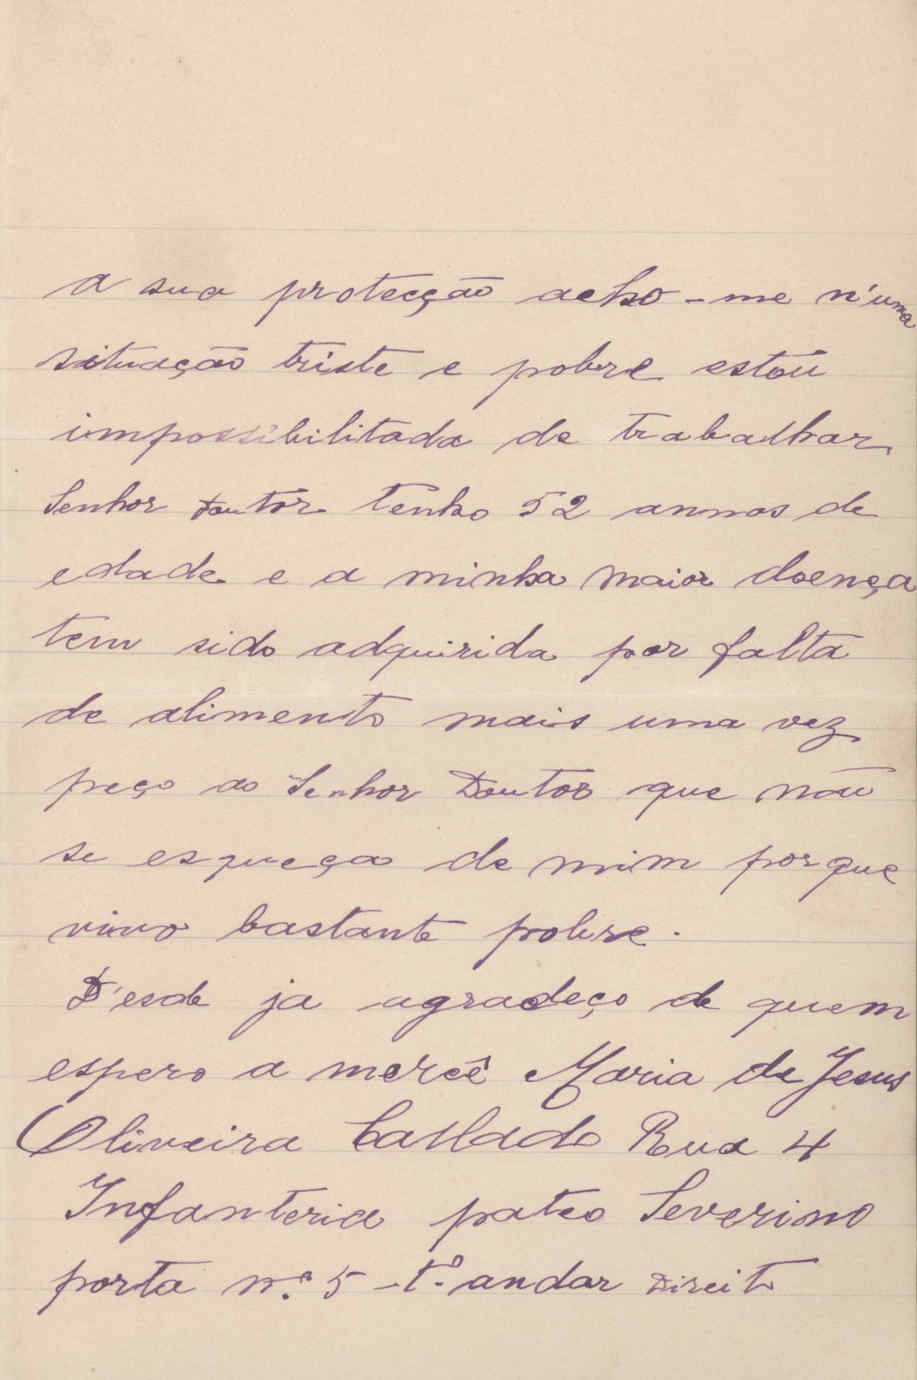 a sua protecção acho-me n'uma
situação triste e pobre estou
impossibilitada de trabalhar
Senhor Doutor tenho 52 annos de
edade e a minha maior doença
tem sido adquirida por falta
de alimento mais uma vez
peço ao Senhor Doutor que não
se esqueça de mim porque
vivo bastante pobre.
D'esde ja agradeço de quem
espero a mercê Maria de Jesus
Oliveira Rua 4
Infanteria pateo Severino
porta n.º 5 - 1.º andar Direito